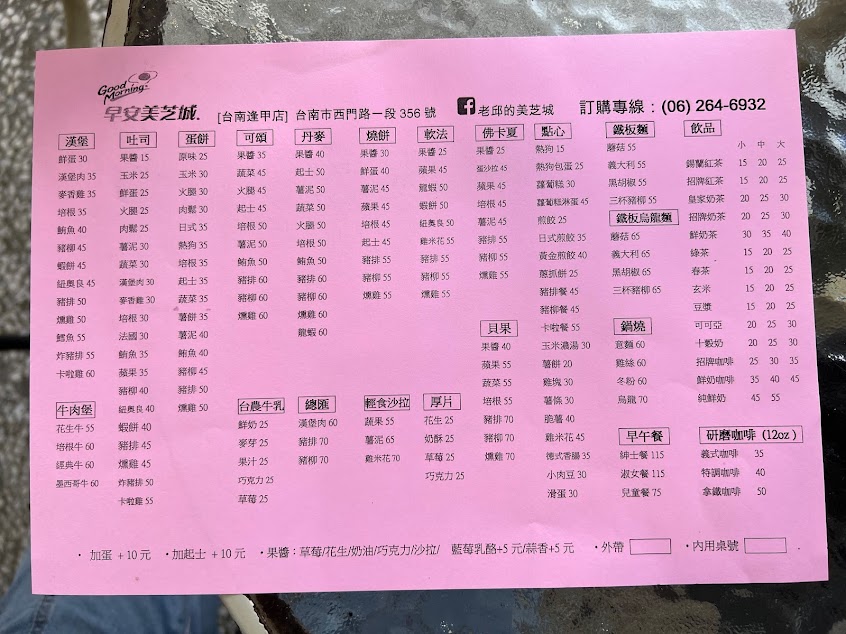 Good Morning!
早安美芝城. [台南逢甲店] 台南市西門路一段 356 號 老邱的美芝城 訂購專線：(06) 264-6932
漢堡
鮮蛋 30
漢堡肉 35
麥香雞 35
培根 35
鮪魚 40
豬柳 45
蝦餅 45
紐奧良 45
豬排 50
燻雞 50
鱈魚 55
炸豬排 55
卡啦雞 60
牛肉堡
花生牛 55
培根牛 60
經典牛 60
墨西哥牛 60
吐司
果醬 15
玉米 25
鮮蛋 25
火腿 25
肉鬆 25
薯泥 30
蔬菜 30
漢堡肉 30
麥香雞 30
培根 30
法國 30
鮪魚 35
蘋果 35
豬柳 40
紐奧良 40
蝦餅 40
豬排 45
燻雞 45
炸豬排 50
卡啦雞 55
蛋餅
原味 25
玉米 30
火腿 30
肉鬆 30
日式 35
熱狗 35
培根 35
起士 35
蔬菜 35
薯餅 35
薯泥 40
鮪魚 40
豬柳 45
豬排 50
燻雞 50
可頌
果醬 35
蔬菜 45
火腿 45
起士 45
培根 50
薯泥 50
鮪魚 50
豬排 60
豬柳 60
燻雞 60
台農牛乳
鮮奶 25
麥芽 25
果汁 25
巧克力 25
草莓 25
丹麥
果醬 40
起士 50
薯泥 50
蔬菜 50
火腿 50
培根 50
鮪魚 50
豬排 60
豬柳 60
燻雞 60
龍蝦 60
總匯
漢堡肉 60
豬排 70
豬柳 70
燒餅
果醬 30
鮮蛋 40
薯泥 45
蘋果 45
培根 45
起士 45
豬排 55
豬柳 55
燻雞 55
輕食沙拉
蔬果 55
薯泥 65
雞米花 70
軟法
果醬 25
蘋果 45
龍蝦 50
蝦餅 50
紐奧良 50
雞米花 55
豬排 55
豬柳 55
燻雞 55
厚片
花生 25
奶酥 25
草莓 25
巧克力 25
佛卡夏
果醬 25
蛋沙拉 45
蘋果 45
培根 45
薯泥 45
豬排 55
豬柳 55
燻雞 55
貝果
果醬 40
蘋果 55
蔬菜 55
培根 55
豬排 70
豬柳 70
燻雞 70
點心
熱狗 15
熱狗包蛋 25
蘿蔔糕 30
蘿蔔糕淋蛋 45
煎餃 25
日式煎餃 35
黃金煎餃 40
蔥抓餅 25
豬排餐 45
豬柳餐 45
卡啦餐 55
玉米濃湯 30
薯餅 20
雞塊 30
薯條 30
脆薯 40
雞米花 45
德式香腸 35
小肉豆 30
滑蛋 30
鐵板麵
蘑菇 55
義大利 55
黑胡椒 55
三杯豬柳 55
鐵板烏龍麵
蘑菇 65
義大利 65
黑胡椒 65
三杯豬柳 65
鍋燒
意麵 60
雞絲 60
冬粉 60
烏龍 70
早午餐
紳士餐 115
淑女餐 115
兒童餐 75
飲品
小 中 大
錫蘭紅茶 15 20 25
招牌紅茶 15 20 25
皇家奶茶 20 25 30
招牌奶茶 20 25 30
鮮奶茶 30 35 40
綠茶 15 20 25
春茶 15 20 25
玄米 15 20 25
豆漿 15 20 25
可可亞 20 25 30
十穀奶 20 25 30
招牌咖啡 25 30 35
鮮奶咖啡 35 40 45
純鮮奶 45 55
研磨咖啡 (12oz )
義式咖啡 35
特調咖啡 40
拿鐵咖啡 50
· 加蛋 +10 元 ·加起士 +10 元 ·果醬：草莓/花生/奶油/巧克力/沙拉/ 藍莓乳酪+5 元/蒜香+5 元 ·外帶 ·內用桌號